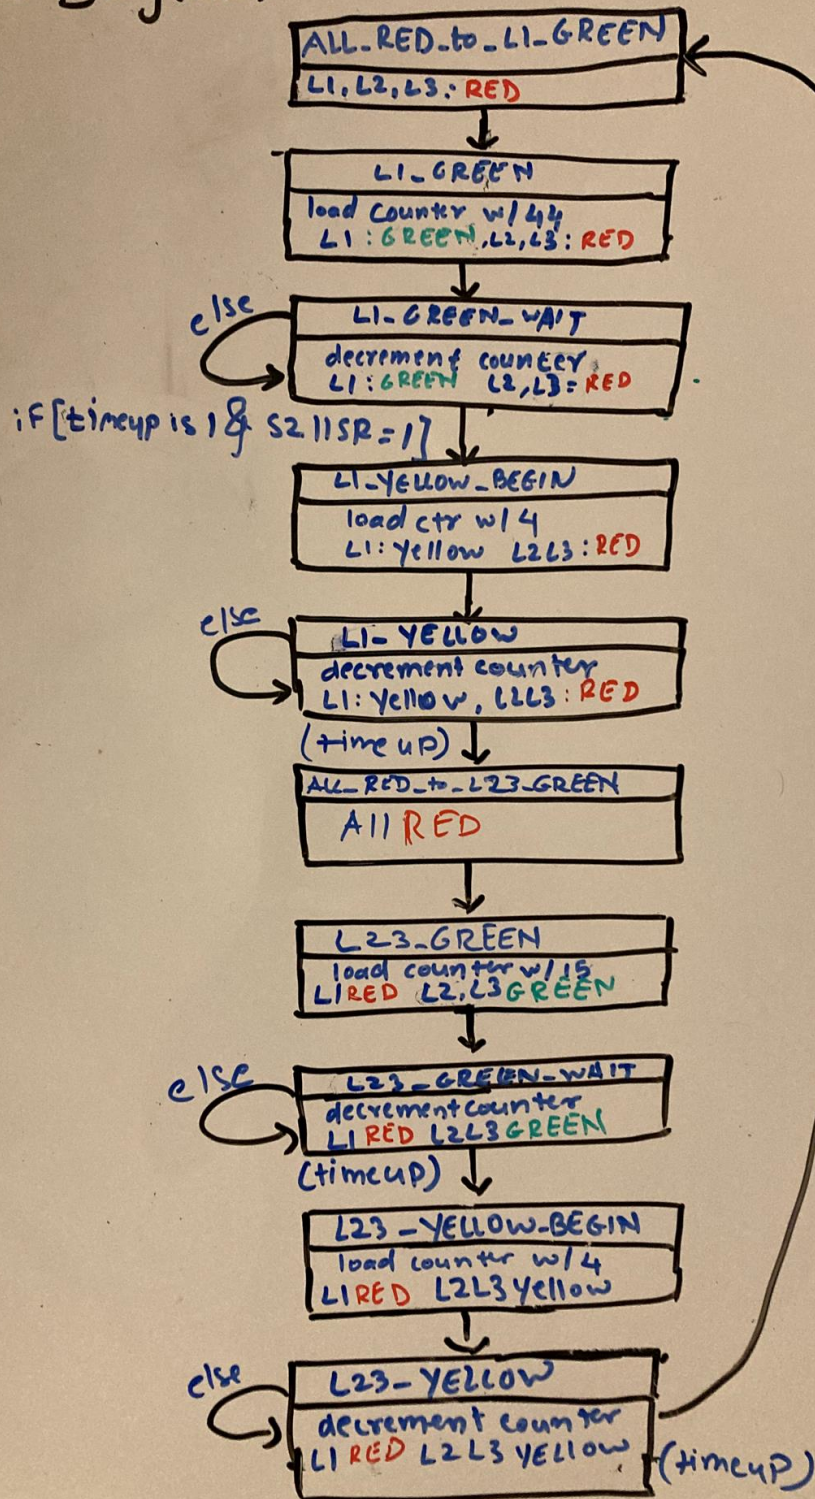 ALL_RED_to_L1_GREEN
L1, L2, L3: RED
L1_GREEN
load counter w/ 44
L1: GREEN, L2, L3: RED
else
L1_GREEN_WAIT
decrement counter
L1: GREEN L2, L3= RED
if [timeup is 1 & S2 || SR = 1]
L1_YELLOW_BEGIN
load ctr w/ 4
L1: Yellow L2L3: RED
else
L1_YELLOW
decrement counter
L1: Yellow, L2L3: RED
(time up)
ALL_RED_to_L23_GREEN
All RED
L23_GREEN
load counter w/ 15
L1 RED L2, L3 GREEN
else
L23_GREEN_WAIT
decrement counter
L1 RED L2L3 GREEN
(timeup)
L23_YELLOW_BEGIN
load counter w/ 4
L1 RED L2L3 Yellow
else
L23_YELLOW
decrement counter
L1 RED L2L3 YELLOW
(timeup)